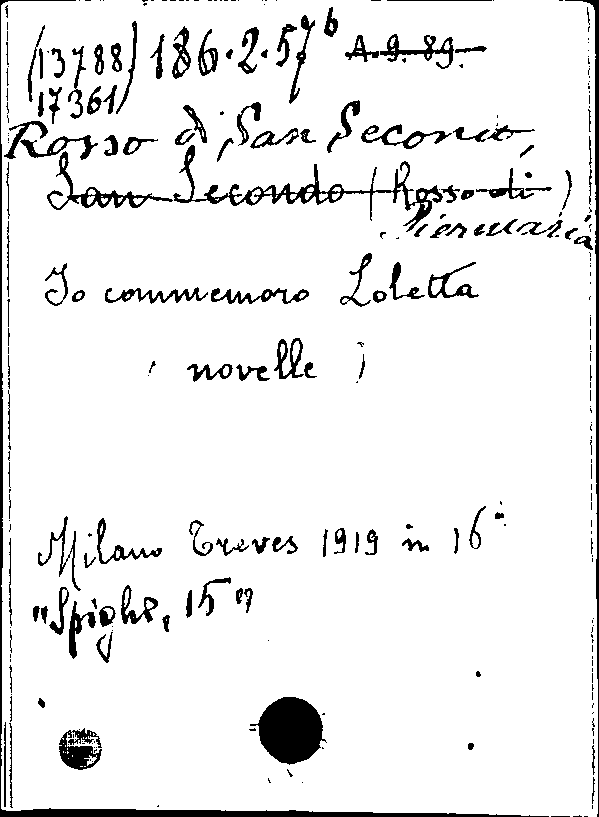 (13788) 186.2.57 b A.9.89.
17361)
Rosso di San Secondo,
San Secondo (Rosso di)
Piermaria
Io commemoro Loletta
( novelle )
Milano Treves 1919 in 16°
"Spighe, 15"